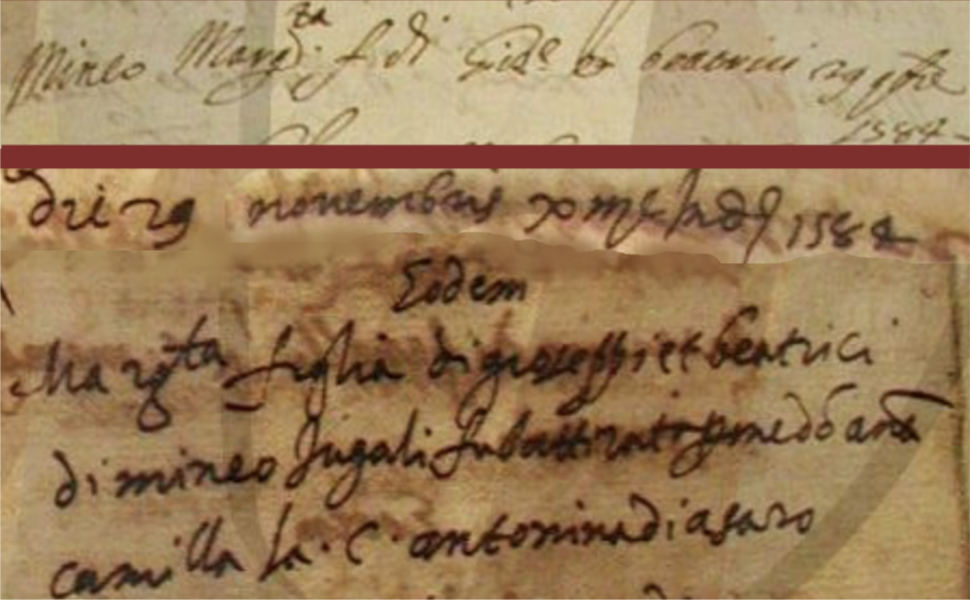 Mineo Marg.ta f. di et beatrici 29
1584
die 29 novembris xiii Ind. 1584
Eodem
Margta figlia di gioseppi et beatrici
di mineo Jugali fu battizata p me don
camilla la. C. antonina di asaro